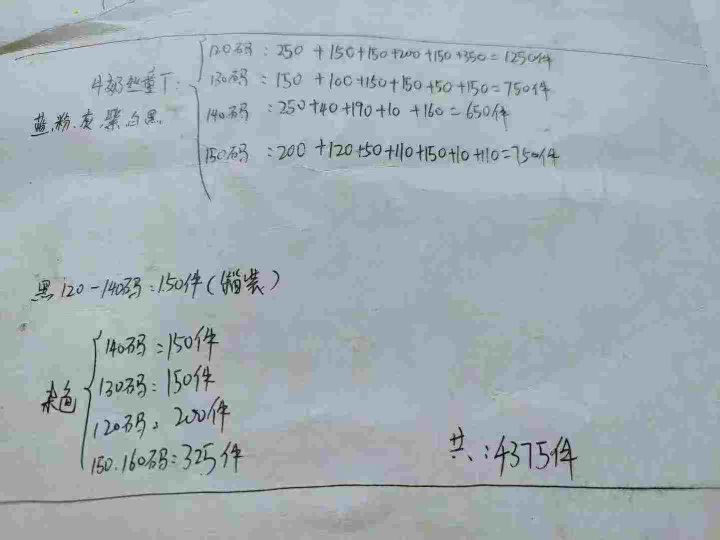 120码：250+150+150+200+150+350=1250件
牛奶丝童T：130码：150+100+150+150+50+150=750件
蓝.粉.灰.紫.白.黑. 140码：250+40+190+10+160=650件
150码：200+120+50+110+150+10+110=750件
黑120-140码：150件(箱装)
140码：150件
杂色 130码：150件
120码：200件
150.160码：325件
共：4375件